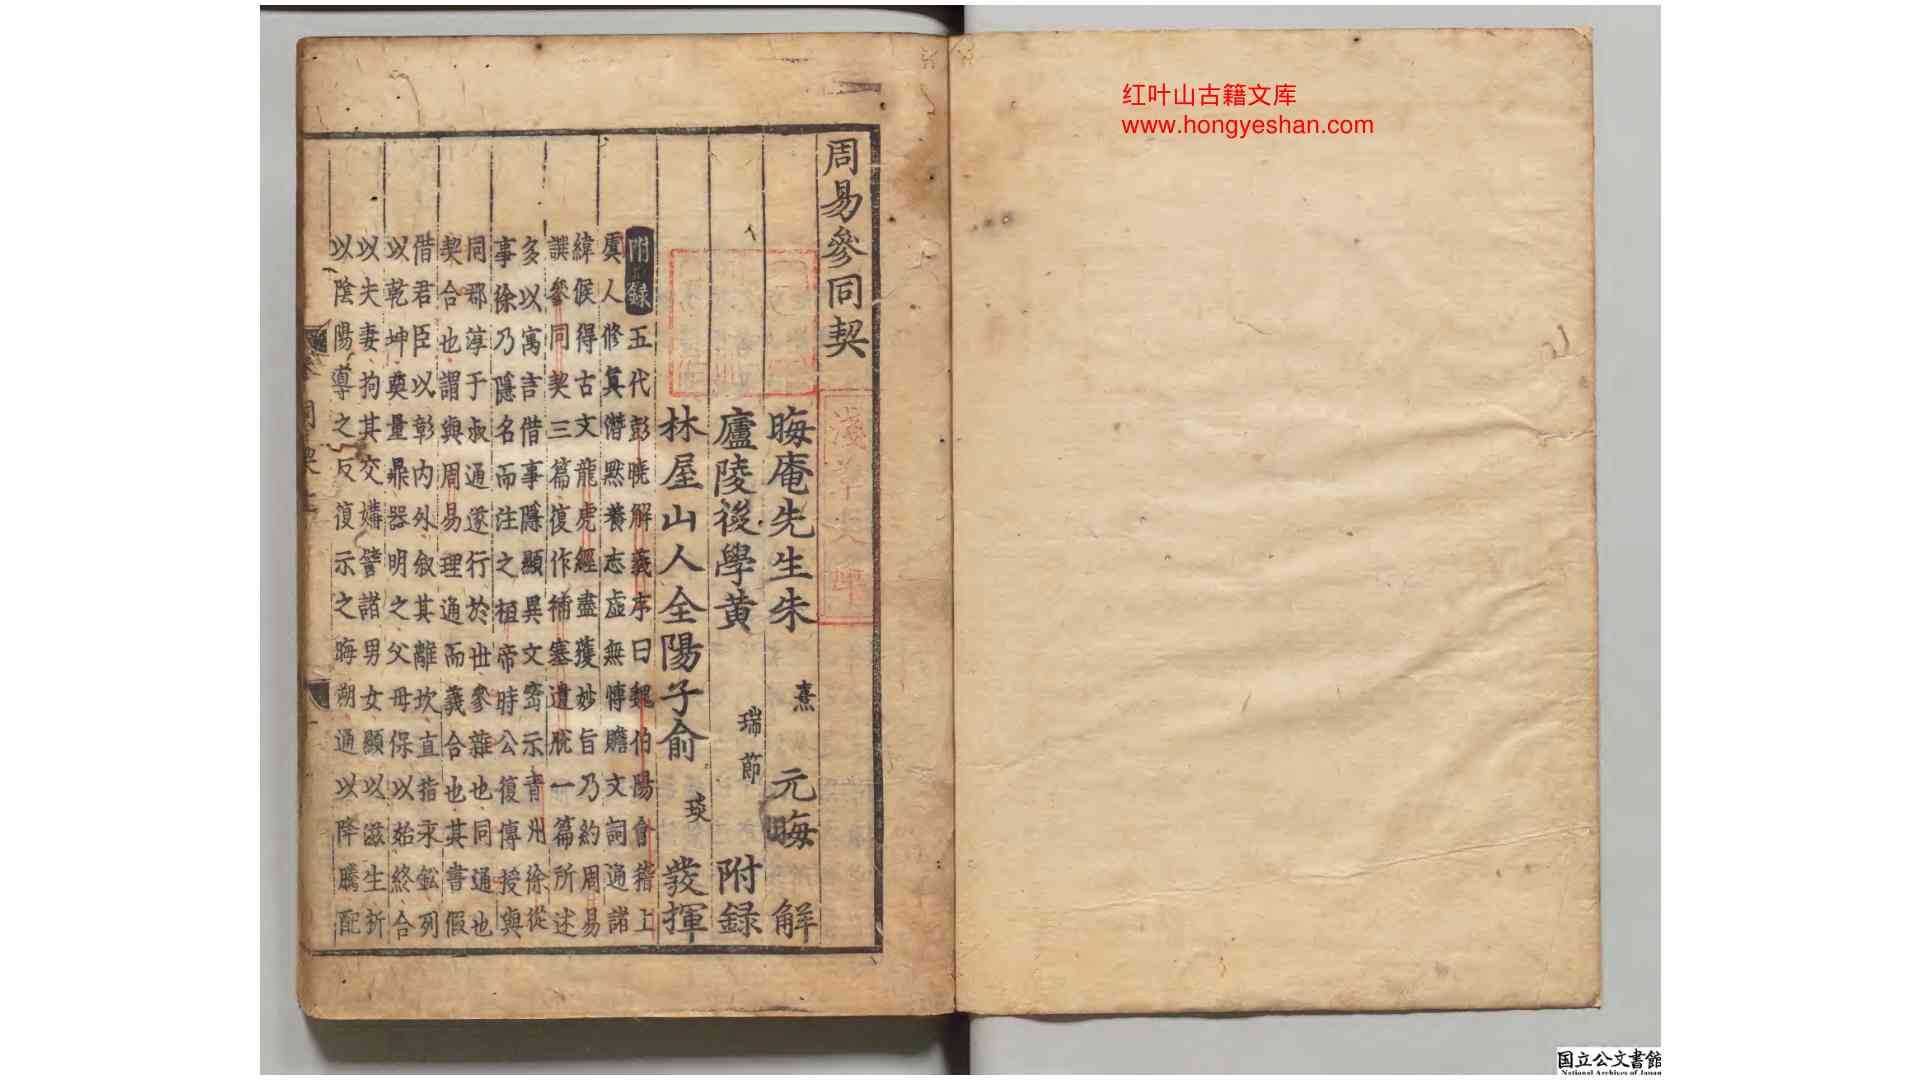 周易參同契
晦庵先生朱熹元晦解
廬陵後學黃瑞節附録
林屋山人全陽子俞琰發揮
附録五代彭曉解義序曰魏伯陽會稽上
虞人修真潛默養志虛無博贍文詞通諸
緯候得古文龍虎經盡獲妙旨乃約周易
譔參同契三篇復作補塞遺脫一篇所述
多以寓言借事隱顯異文密示青州徐從
事徐乃隱名而注之桓帝時公復傳授與
同郡淳于叔通遂行於世參雜也同通也
契合也謂與周易理通而義合也其書假
借君臣以彰内外叙其離坎直指汞鈆列
以乾坤奠量鼎器明之父母保以始終合
以夫妻拘其交媾譬諸男女顯以滋生析
以陰陽導之反復示之晦朔通以降騰配
淺草文庫
红叶山古籍文库
www.hongyeshan.com
国立公文書館
National Archives of Japan